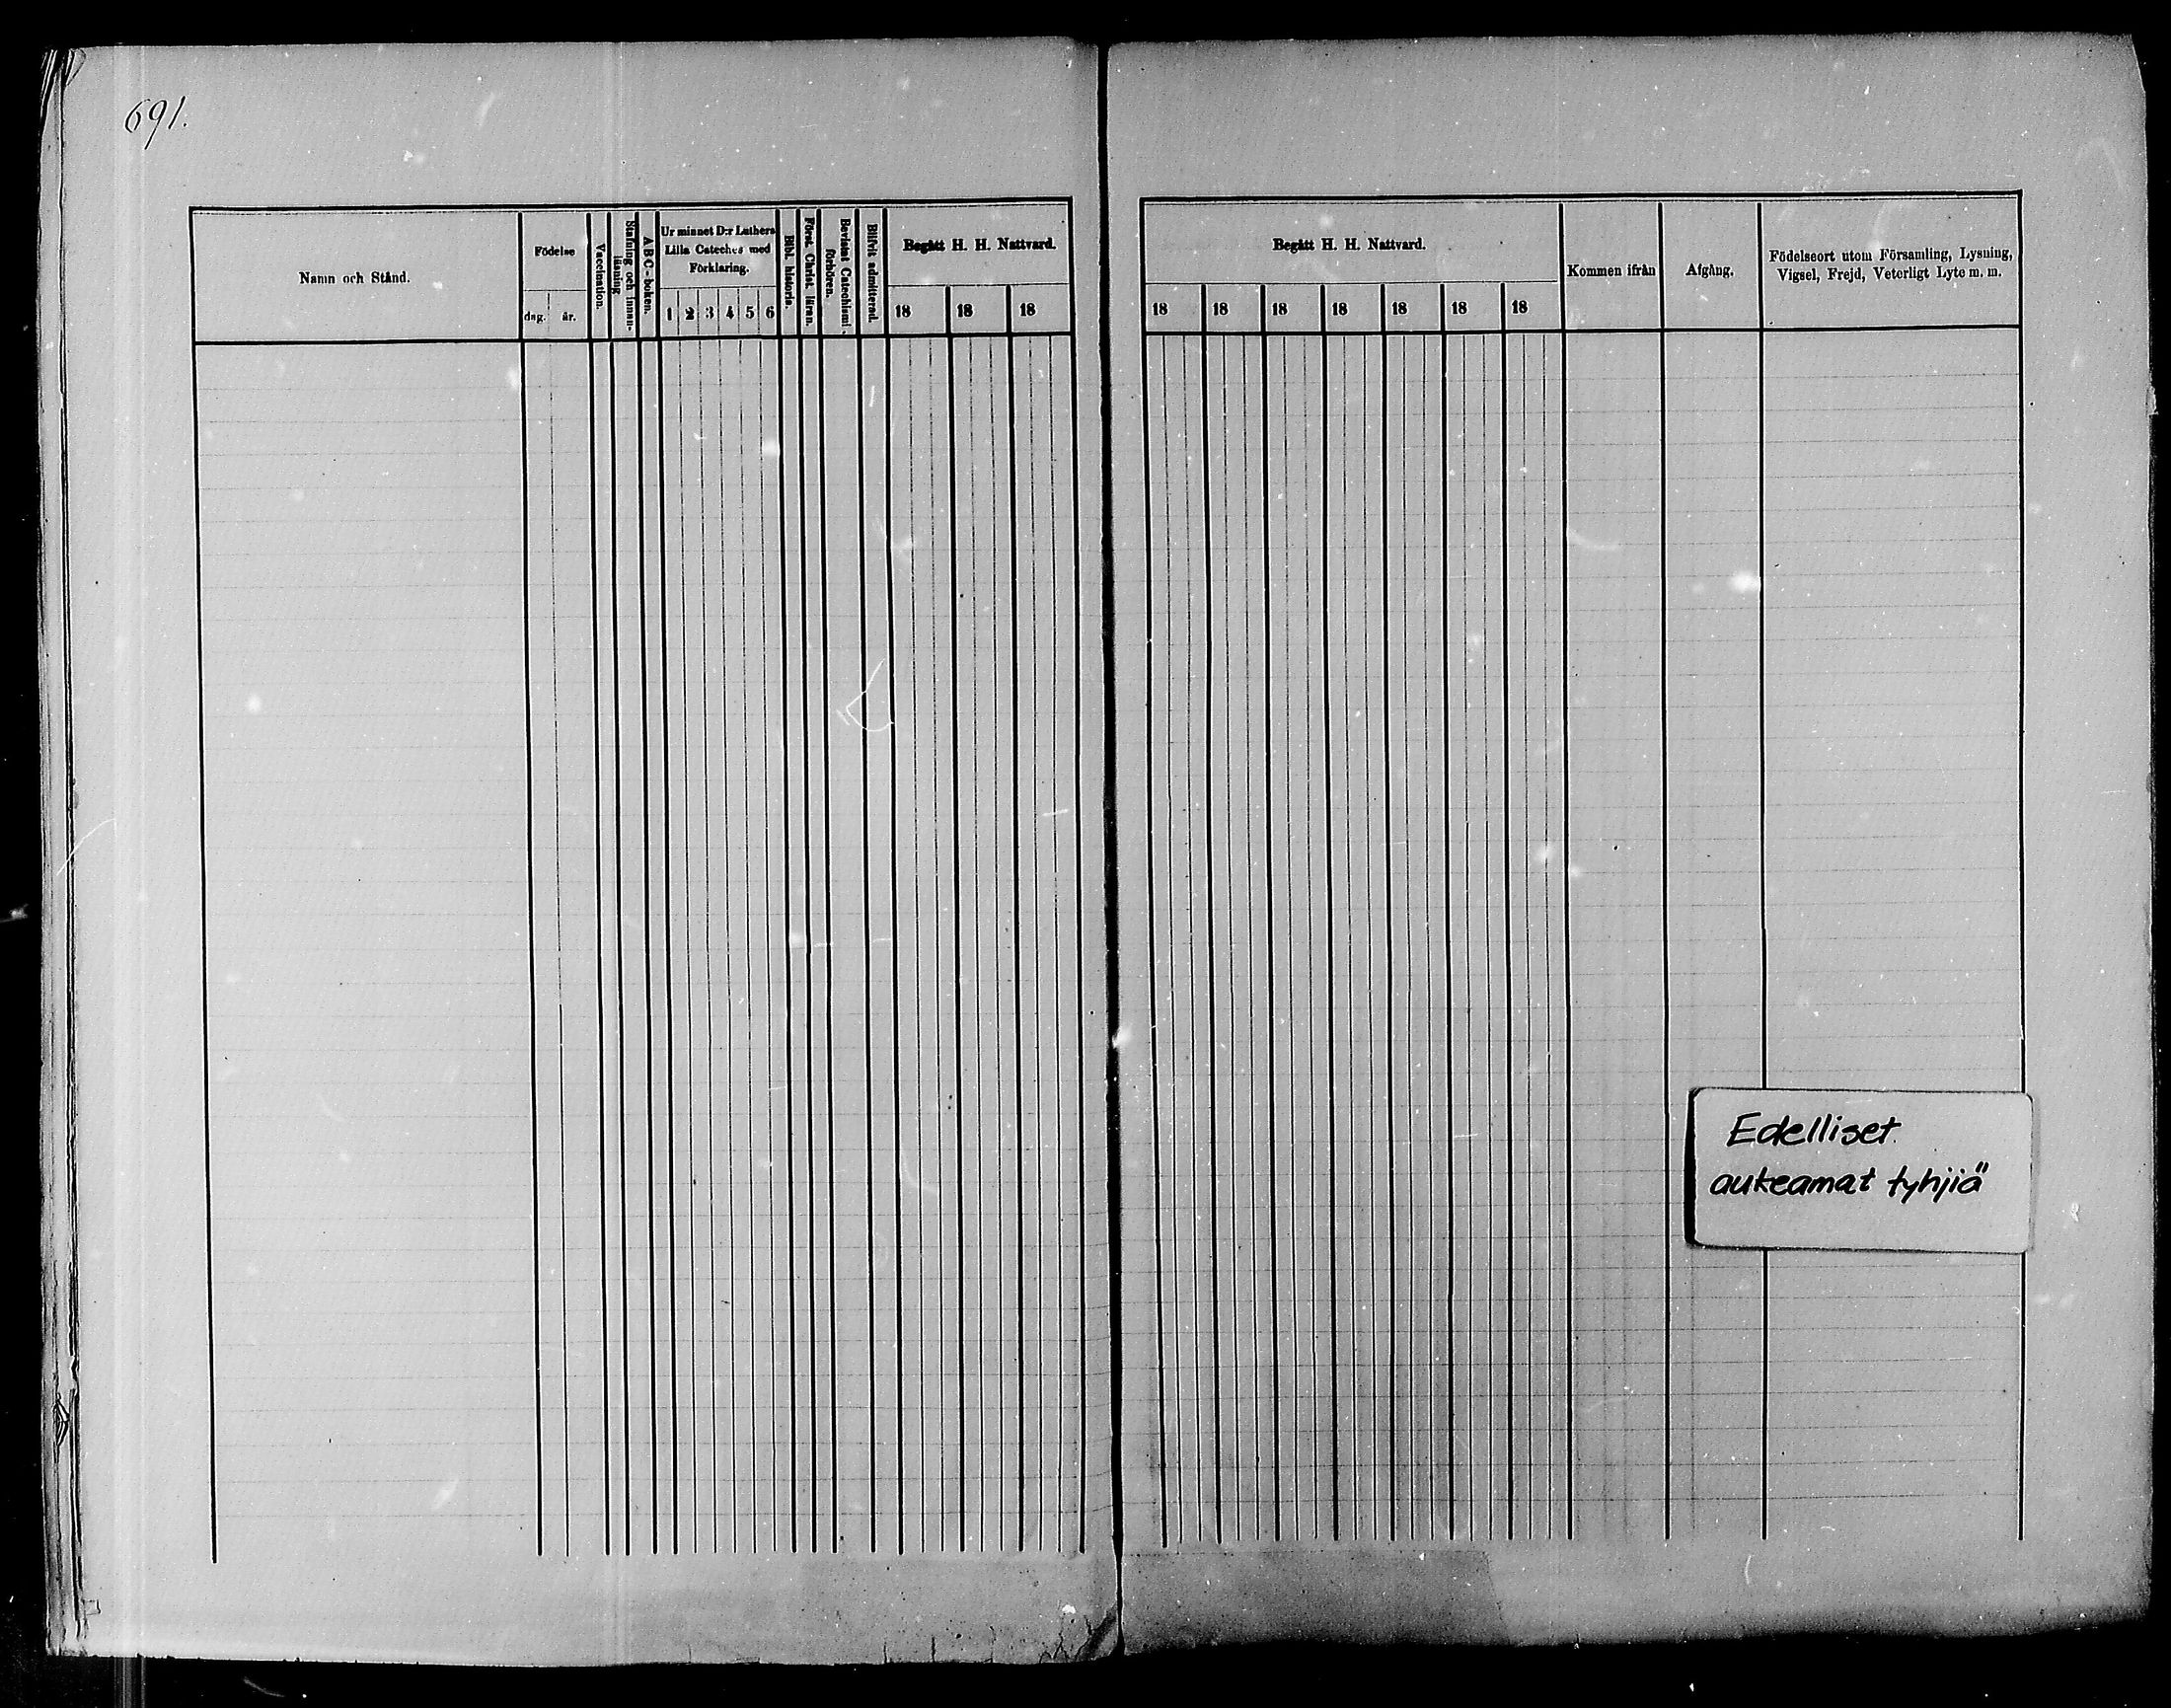 691.
Namn och Stånd.
Födelse
dag. år.
Vaccination.
Stafning och innan-
läsning
ABC-boken.
Ur minnet D:r Luthers
Lilla Cateches med
Förklaring.
1 2 3 4 5 6
Bibl. historia.
Först. Christ. läran.
Bevistat Catechismi
förhören.
Blifvit admitterad.
Begått H. H. Nattvard.
18 18 18
Begått H. H. Nattvard.
18 18 18 18 18 18 18
Kommen ifrån
Afgång.
Födelseort utom Församling, Lysning,
Vigsel, Frejd, Veterligt Lyte m. m.
Edelliset
aukeamat tyhjiä